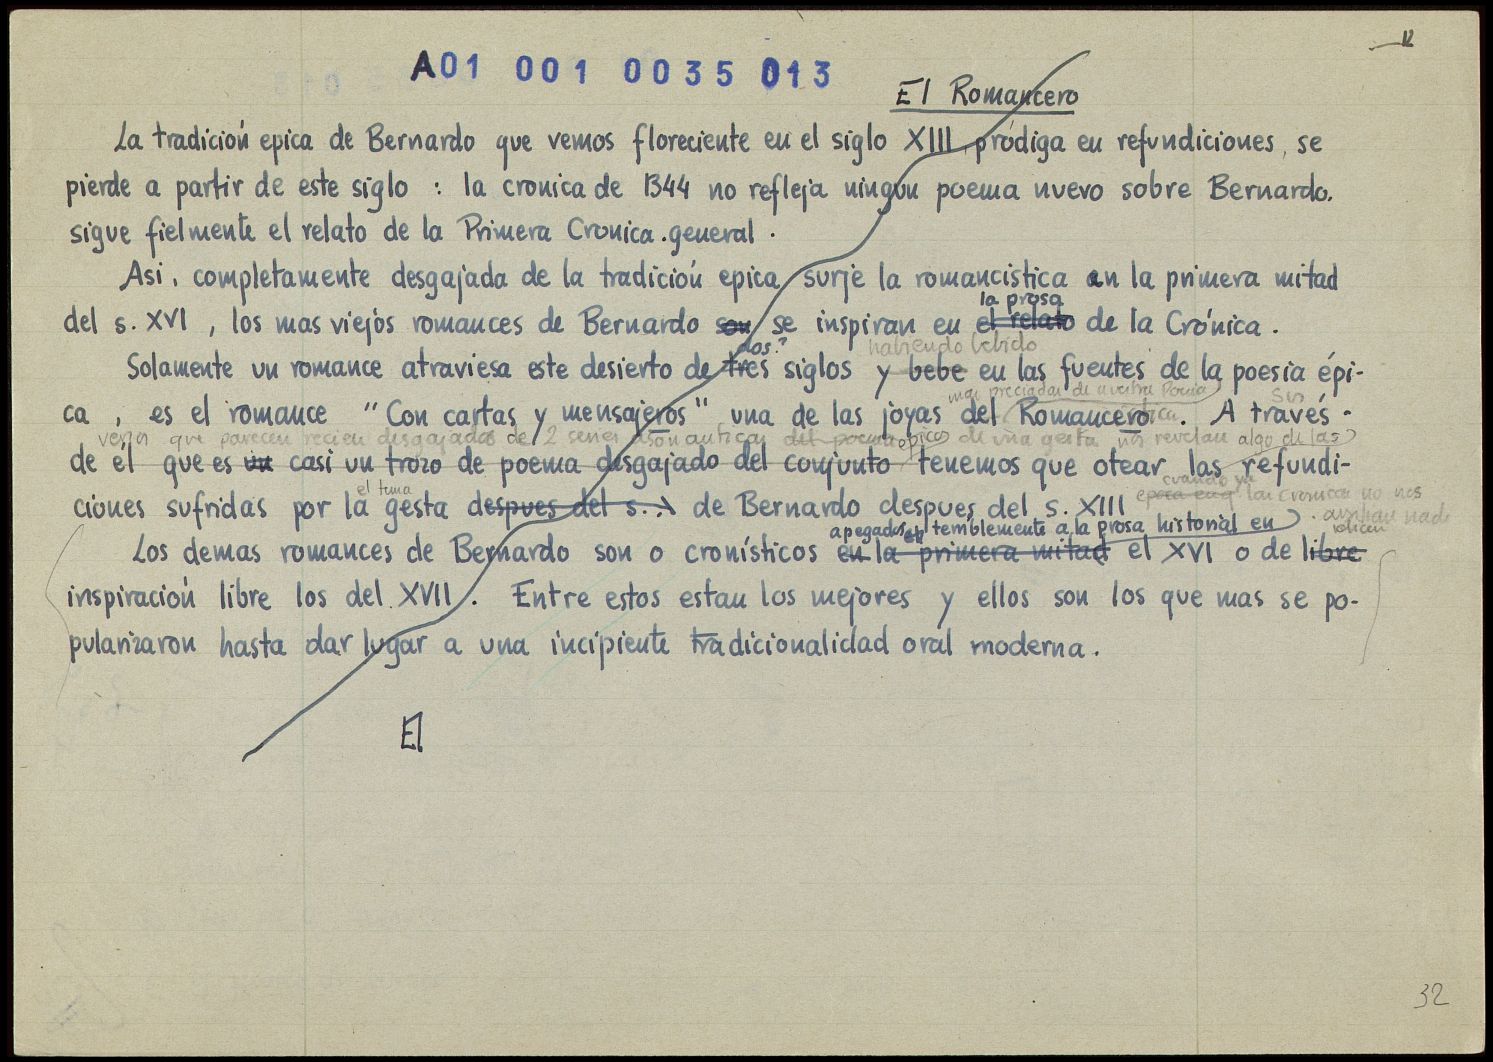 12
A01 001 0035 013
El Romancero
La tradición epica de Bernardo que vemos floreciente en el siglo XIII, pródiga en refundiciones, se
pierde a partir de este siglo : la cronica de 1344 no refleja ningun poema nuevo sobre Bernardo.
sigue fielmente el relato de la Primera Cronica.general.
Asi, completamente desgajada de la tradición epica, surje la romancistica en la primera mitad
la prosa
del s. XVI, los mas viejos romances de Bernardo son se inspiran en el relato de la Crónica.
dos? habiendo bebido
Solamente un romance atraviesa este desierto de tres siglos y bebe en las fuentes de la poesia épi-
mas preciadas de nuestra Poesia
ca, es el romance "Con cartas y mensajeros" una de las joyas del Romancero. A través-
versos que parecen recien desgajados de 2 series asonanticas del poema epico de una gesta nos revelan algo de las
de él que es un casi un trozo de poema desgajado del conjunto, tenemos que otear las refundi-
el tema cuando ya
ciones sufridas por la gesta despues del s.. de Bernardo despues del s. XIII epoca en q las cronicas no nos
apegados temblemente a la prosa historial en
Los demas romances de Bernardo son o cronísticos en la primera mitad el XVI o de libre
inspiración libre los del XVII. Entre estos estan los mejores y ellos son los que mas se po-
pularizaron hasta dar lugar a una incipiente tradicionalidad oral moderna.
El
32